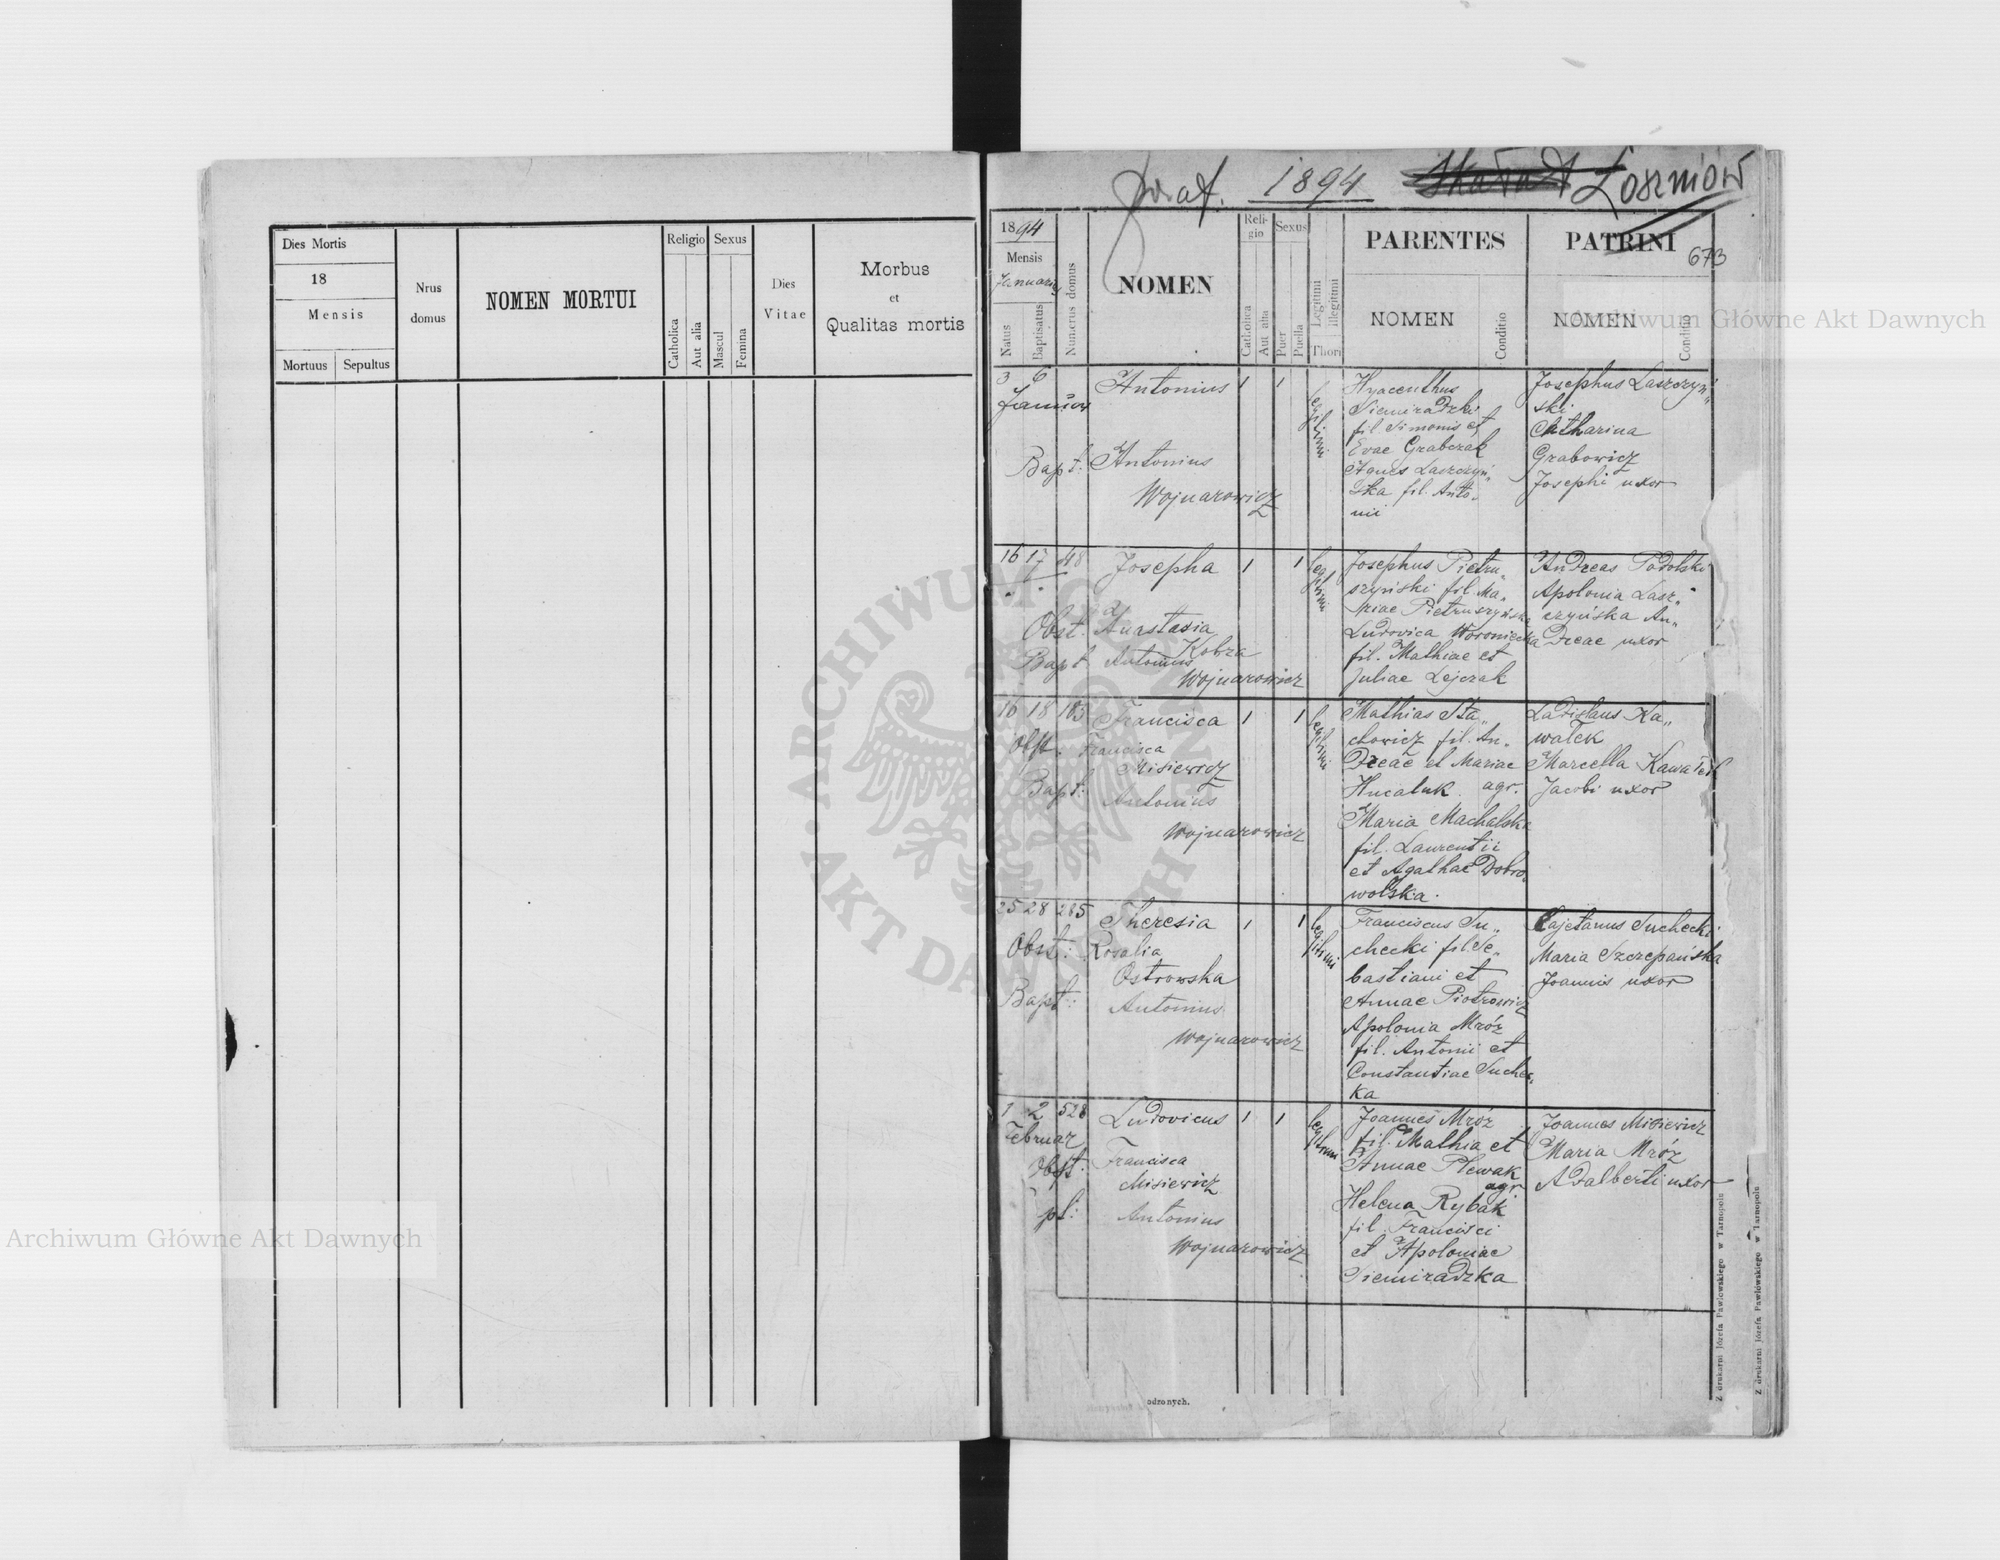 Dies Mortis
18
Mensis
Mortuus Sepultus
Nrus
domus
NOMEN MORTUI
Religio
Catholica
Aut alia
Sexus
Mascul
Femina
Dies
Vitae
Morbus
et
Qualitas mortis
1894 Łoszniów
673
1894
Mensis
Januarius
Natus
Baptisatus
Numerus domus
NOMEN
Reli-
gio
Catholica
Aut alia
Sexus
Puer
Puella
Legitimi
illegitimi
Thori
PARENTES
NOMEN
Conditio
PATRINI
NOMEN
Conditio
3 6
Antonius 1 1
legitimi
Bapt: Antonius
Wojnarowicz
Hyacenthus
Siemiradzki
fil Simonis et
Evae Grabczak
Agnes Laszczyń„
ska fil. Anto„
nii
Josephus Laszczyń„
ski
Catharina
Grabowicz
Josephi uxor
16 17 48
Josepha 1 1
legitimi
Obst. Anastasia
Kobza
Bapt Antonius
Wojnarowicz
Josephus Pietru„
szyński fil. Ma„
riae Pietruszyńska
Ludovica Woroniecka
fil. Mathiae et
Juliae Lejczak
Andreas Podolski
Apolonia Lasz„
czyńska An„
dreae uxor
16 18 183
Francisca 1 1
legitimi
Obst. Francisca
Misiewicz
Bapt: Antonius
Wojnarowicz
Mathias Sta„
chowicz fil. An„
dreae et Mariae
Hucaluk. agr.
Maria Machalska
fil. Laurentii
et Agathae Dobro„
wolska.
Ladislaus Ka„
wałek
Marcella Kawałek
Jacobi uxor
25 28 285
Theresia 1 1
legitimi
Obst: Rosalia
Ostrowska
Bapt: Antonius
Wojnarowicz
Franciscus Su„
checki fil Se„
bastiani et
Annae Piotrowicz
Apolonia Mróz
fil. Antonii et
Constantiae Suchec„
ka
Cajetanus Suchecki
Maria Szczepańska
Joannis uxor
1 2 528
Februar
Ludovicus 1 1
legitimi
Obst: Francisca
Misiewicz
pt: Antonius
Wojnarowicz
Joannes Mróz
fil. Mathia et
Annae Plewak
agr
Helena Rybak
fil. Francisci
et Apoloniae
Siemiradzka
Joannes Misiewicz
Maria Mróz
Adalberti uxor
odronych.
Z drukarni Józefa Pawłowskiego w Tarnopolu
Z drukarni Józefa Pawłowskiego w Tarnopolu
Archiwum Główne Akt Dawnych
Archiwum Główne Akt Dawnych
ARCHIWUM GŁÓWNE
AKT DAWNYCH